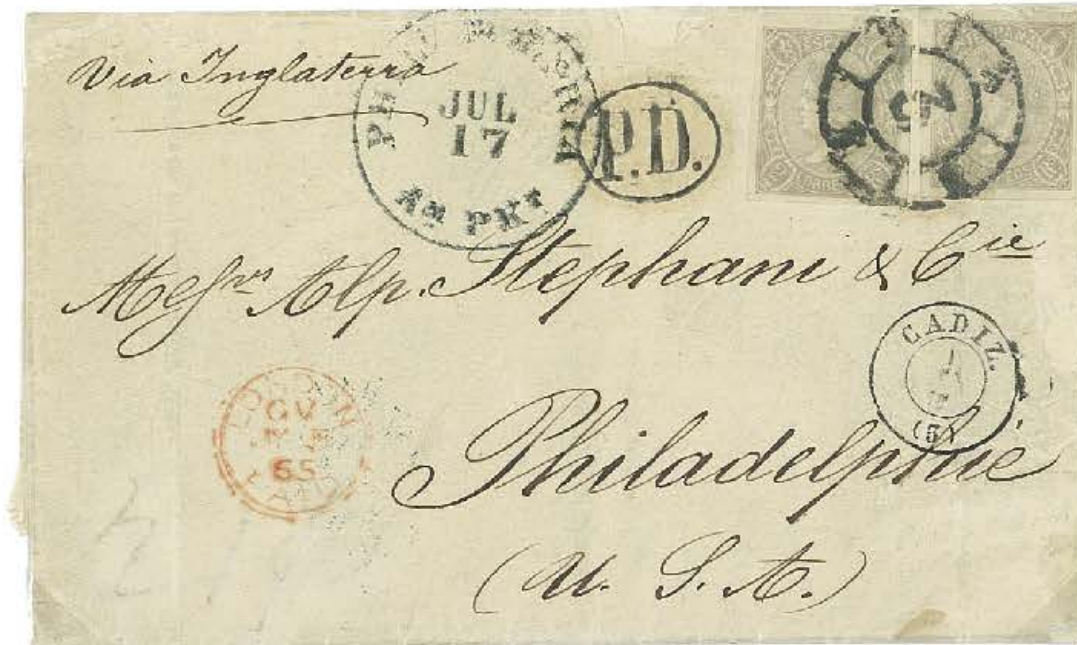 Via Inglaterra
JUL
17
AM PKT
P.D.
5
Messrs Alp. Stephani & Cie
CADIZ.
(5)
LONDON
65
PAID
Philadelphie
(U. S. A.)